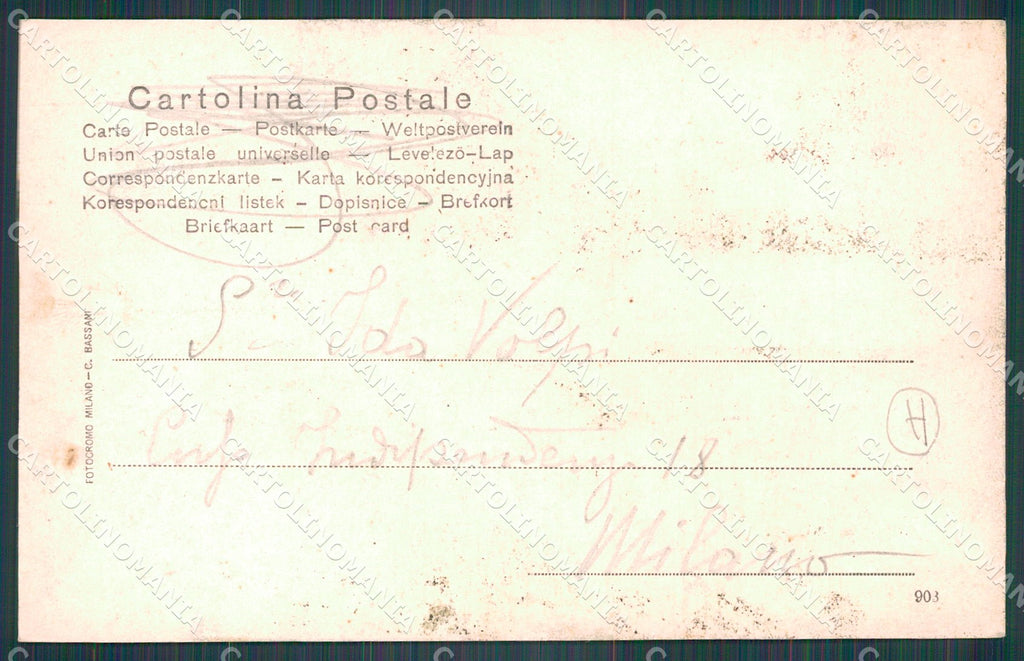 Cartolina Postale
Carte Postale — Postkarte — Weltpostverein
Union postale universelle — Levelezö-Lap
Correspondenzkarte - Karta korespondencyjna
Korespondencni listek - Dopisnice - Brefkort
Briefkaart — Post card
FOTOCROMO MILANO - C. BASSANI
Sa Ida Volpi
18
Milano
H
903
CARTOLINOMANIA